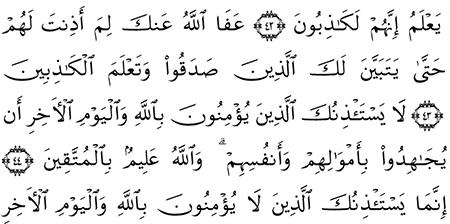 يَعْلَمُ إِنَّهُمْ لَكَـٰذِبُونَ ﴿٤٢﴾ عَفَا ٱللَّهُ عَنكَ لِمَ أَذِنتَ لَهُمْ
حَتَّىٰ يَتَبَيَّنَ لَكَ ٱلَّذِينَ صَدَقُوا۟ وَتَعْلَمَ ٱلْكَـٰذِبِينَ
﴿٤٣﴾ لَا يَسْتَـْٔذِنُكَ ٱلَّذِينَ يُؤْمِنُونَ بِٱللَّهِ وَٱلْيَوْمِ ٱلْـَٔاخِرِ أَن
يُجَـٰهِدُوا۟ بِأَمْوَٰلِهِمْ وَأَنفُسِهِمْ ۗ وَٱللَّهُ عَلِيمٌۢ بِٱلْمُتَّقِينَ ﴿٤٤﴾
إِنَّمَا يَسْتَـْٔذِنُكَ ٱلَّذِينَ لَا يُؤْمِنُونَ بِٱللَّهِ وَٱلْيَوْمِ ٱلْـَٔاخِرِ